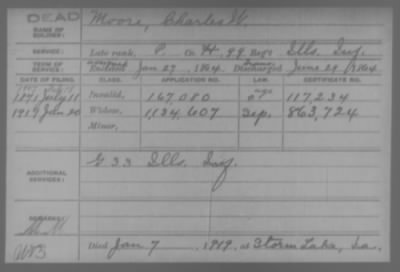 DEAD
NAME OF SOLDIER: Moore, Charles W.
SERVICE: Late rank, P. Co H, 99 Reg't Ills. Inf.
TERM OF SERVICE: Enlisted Jan 27, 1864. Discharged June 29, 1864
DATE OF FILING. CLASS. APPLICATION NO. LAW. CERTIFICATE NO.
1871 July 11 Invalid, 167,080 117,234
1919 Jan 20 Widow, 1,134,607 Sep. 863,724
Minor,
ADDITIONAL SERVICES: G 33 Ills. Inf.
REMARKS:
Died Jan 7 1919, at Storm Lake, Ia.